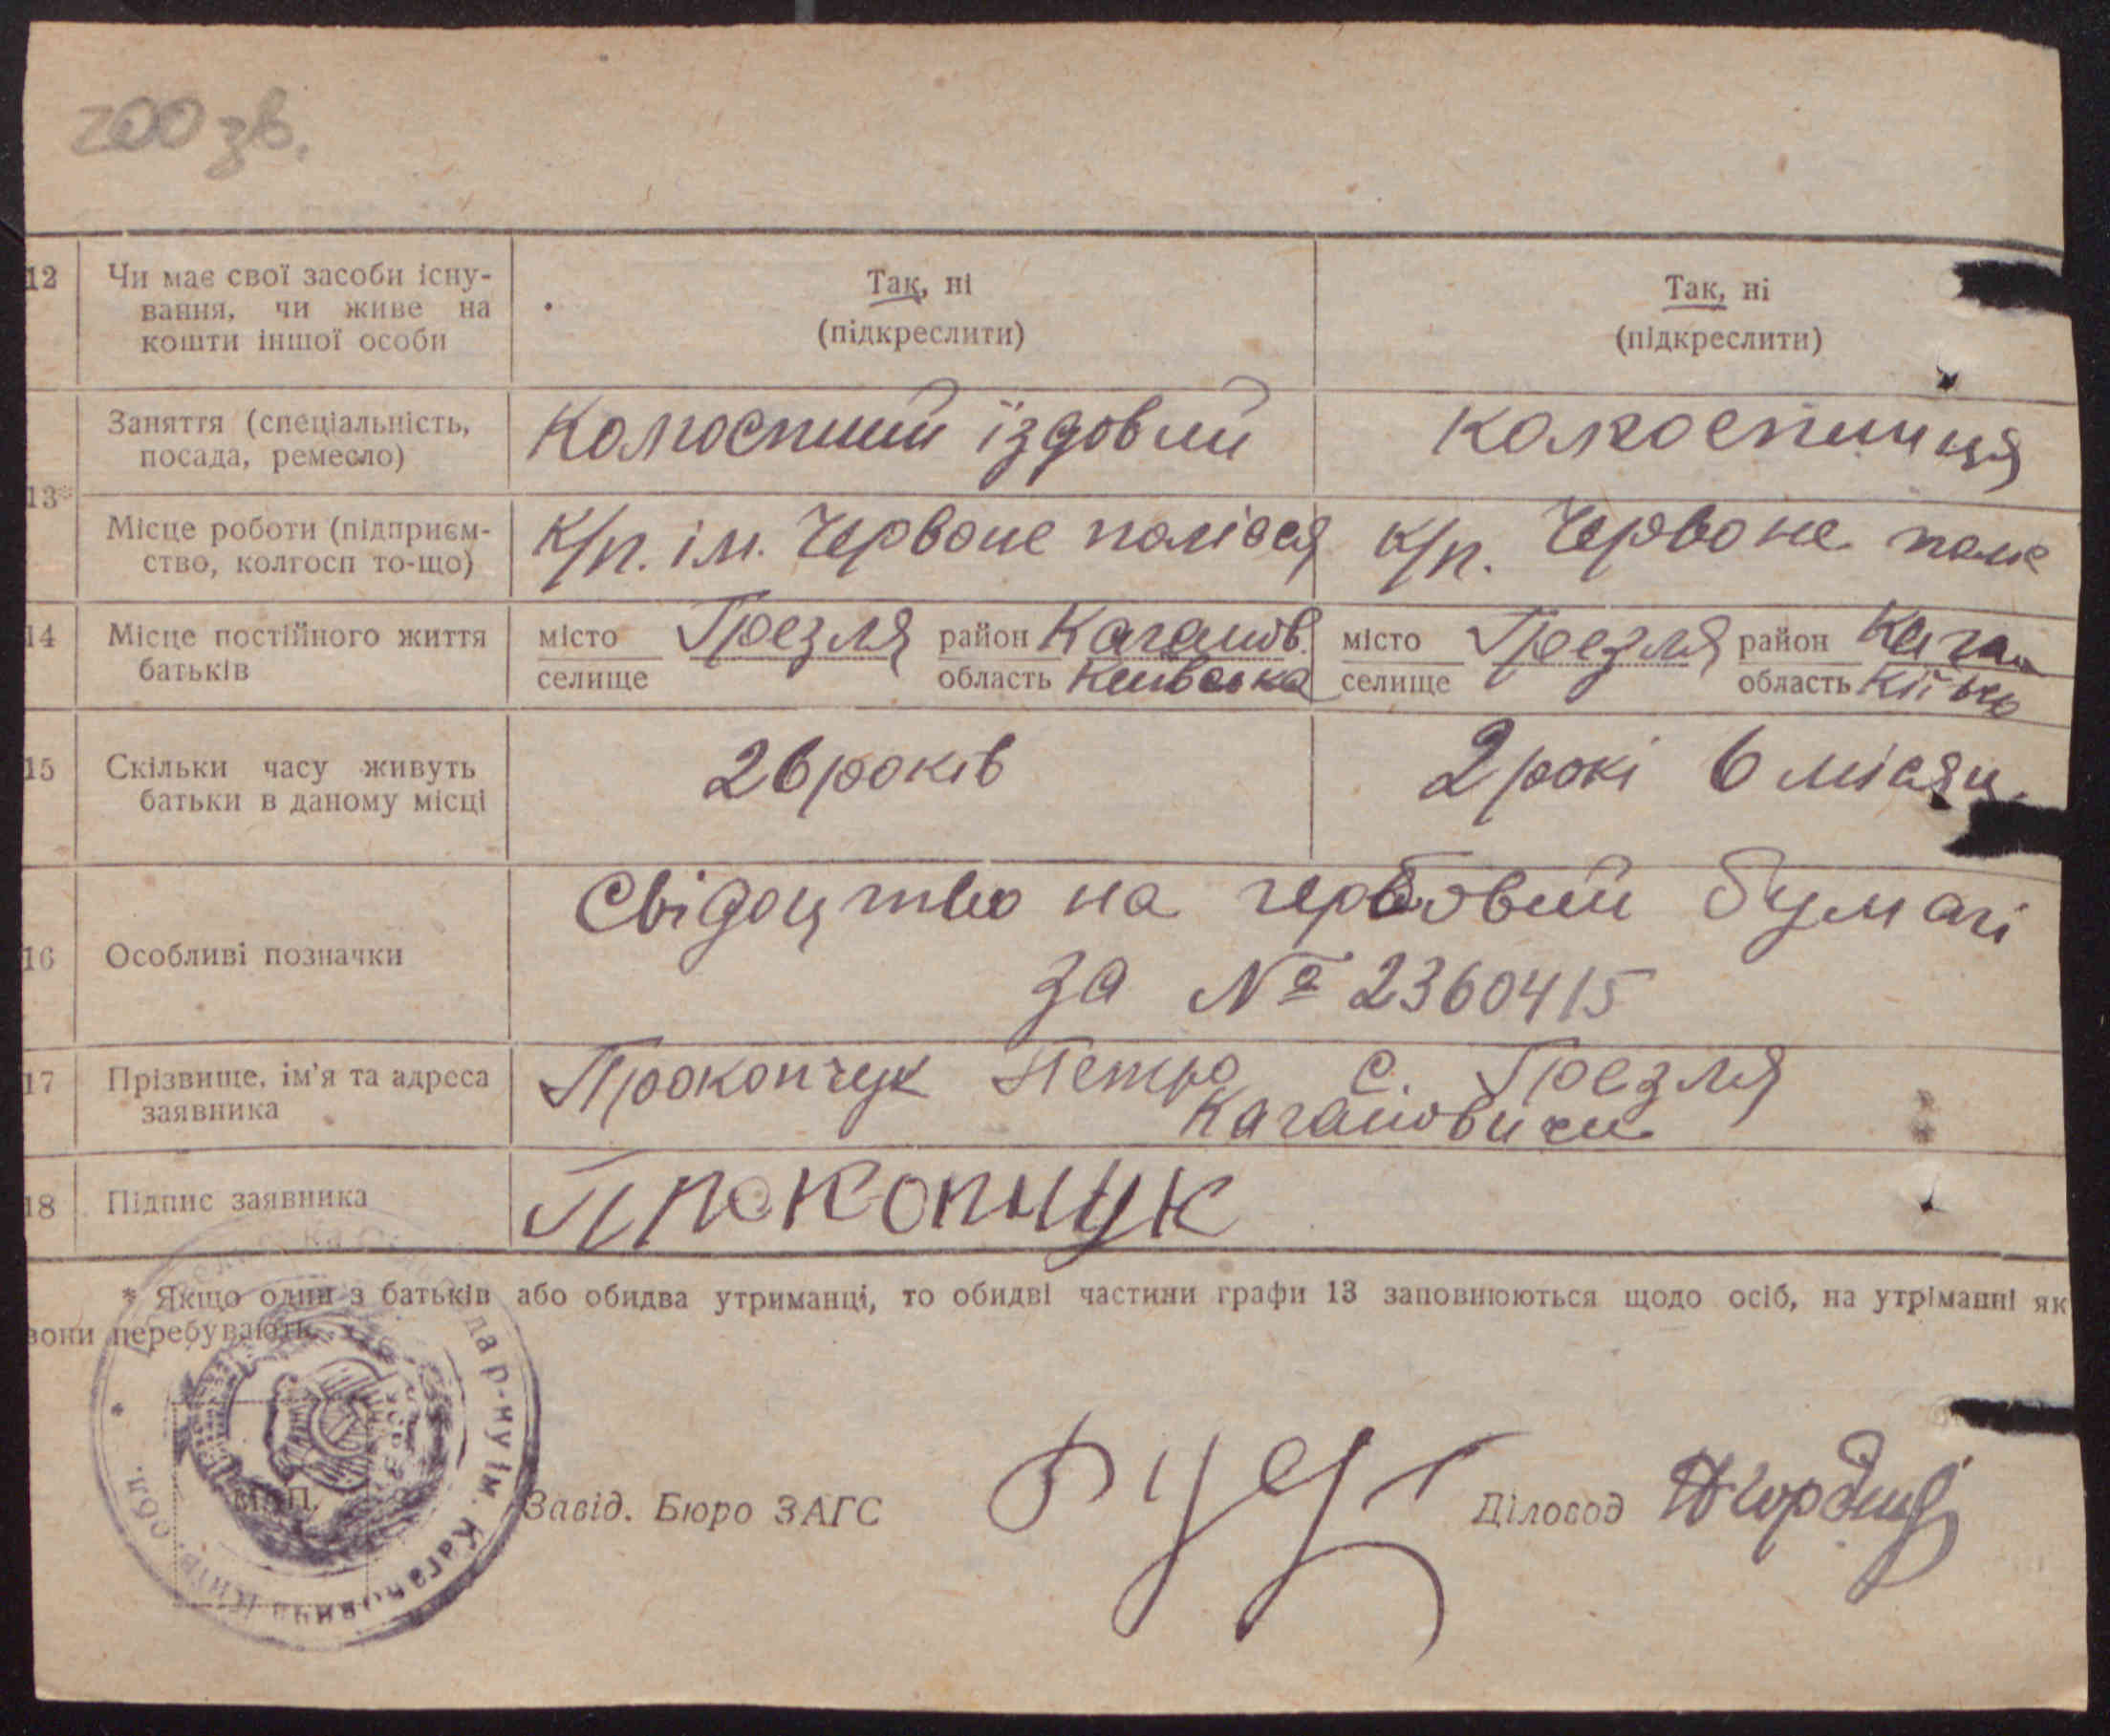 200 зв.
12 Чи має свої засоби існу-
вання, чи живе на
кошти іншої особи
Так, ні
(підкреслити)
Так, ні
(підкреслити)
13*
Заняття (спеціальність,
посада, ремесло)
Колгоспний їздовий
колгоспниця
Місце роботи (підприєм-
ство, колгосп то-що)
К/п. ім. Червоне полісся
к/п. Червоне поле
14 Місце постійного життя
батьків
місто Грезля район Каганов.
селище область Київська
місто Грезля район Каган
селище область
15 Скільки часу живуть
батьки в даному місці
26 років
2 рокі 6 місяц.
16 Особливі позначки
Свідоцтво на гербовий бумагі
за № 2360415
17 Прізвище, ім'я та адреса
заявника
Прокопчук Петро с. Грезля
Кагановичи
18 Підпис заявника
Прокопчук
* Якщо один з батьків або обидва утриманці, то обидві частини графи 13 заповнюються щодо осіб, на утріманні як
вони перебувають.
р-ну ім. Кагановича Київ. обл.
М. П.
Завід. Бюро ЗАГС
Діловод